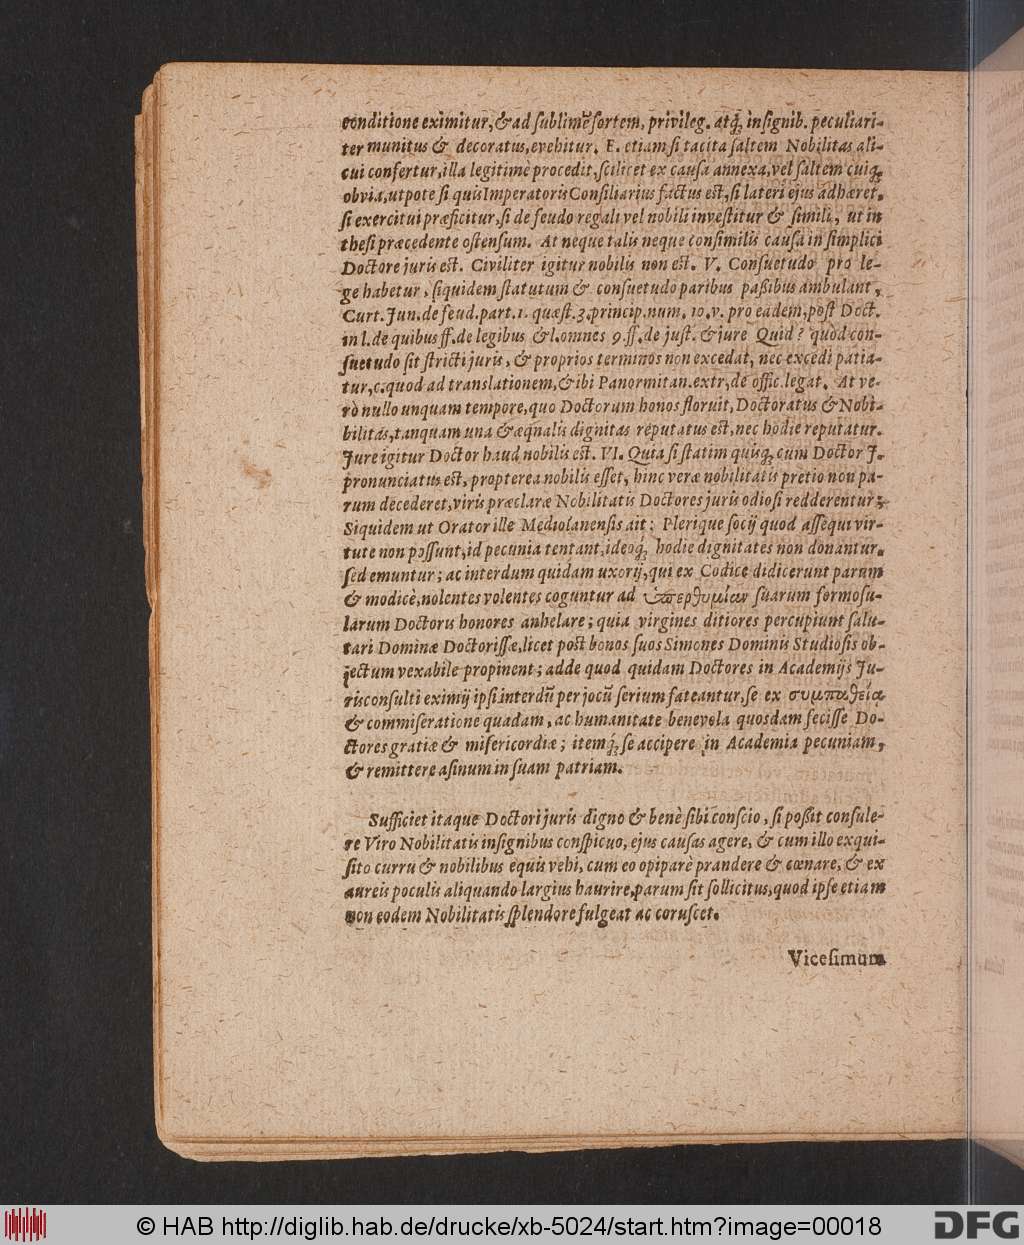 conditione eximitur, & ad ſublimẽ ſortem, privileg. atq́; inſignib. peculiari-
ter munitus & decoratus, evehitur. E. etiam ſi tacita ſaltem Nobilitas ali-
cui confertur, illa legitimè procedit, ſcilicet ex cauſa annexa, vel ſaltem cuiq́;
obvia, utpote ſi quis Imperatoris Conſiliarius factus eſt, ſi lateri ejus adhæret,
ſi exercitui præficitur, ſi de feudo regali vel nobili inveſtitur & ſimili, ut in
theſi præcedente oſtenſum. At neque talis neque conſimilis cauſa in ſimplici
Doctore juris eſt. Civiliter igitur nobilis non eſt. V. Conſuetudo pro le-
ge habetur, ſiquidem ſtatutum & conſuetudo paribus paßibus ambulant,
Curt. Jun. de feud. part. 1. quæſt. 3. princip. num. 10. v. pro eadem, poſt Doct.
in l. de quibus ff. de legibus & l. omnes 9. ff. de juſt. & jure Quid? quòd con-
ſuetudo ſit ſtricti juris, & proprios terminos non excedat, nec excedi patia-
tur, c. quod ad translationem, & ibi Panormitan. extr, de offic. legat. At ve-
rò nullo unquam tempore, quo Doctorum honos floruit, Doctoratus & Nobi-
bilitas, tanquam una & æqualis dignitas reputatus eſt, nec hodie reputatur.
Jure igitur Doctor haud nobilis eſt. VI. Quia ſi ſtatim quisq́; cum Doctor J.
pronunciatus eſt, propterea nobilis eſſet, hinc veræ nobilitatis pretio non pa-
rum decederet, viris præclaræ Nobilitatis Doctores juris odioſi redderentur;
Siquidem ut Orator ille Mediolanenſis ait: Plerique ſocij quod aſſequi vir-
tute non poſſunt, id pecunia tentant, ideoq́; hodie dignitates non donantur,
ſed emuntur; ac interdum quidam uxorij, qui ex Codice didicerunt parum
& modicè, nolentes volentes coguntur ad ὑπερθυμίαν ſuarum formoſu-
larum Doctoris honores anhelare; quia virgines ditiores percupiunt ſalu-
tari Dominæ Doctoriſſæ, licet poſt bonos ſuos Simones Dominis Studioſis ob-
jectum vexabile propinent; adde quod quidam Doctores in Academijs Ju-
risconſulti eximij ipſi interdũ per jocũ ſerium fateantur, ſe ex συμπαθείᾳ
& commiſeratione quadam, ac humanitate benevola quosdam feciſſe Do-
ctores gratiæ & miſericordiæ; itemq́; ſe accipere in Academia pecuniam,
& remittere aſinum in ſuam patriam.
Sufficiet itaque Doctori juris digno & benè ſibi conſcio, ſi poßit conſule-
re Viro Nobilitatis inſignibus conſpicuo, ejus cauſas agere, & cum illo exqui-
ſito curru & nobilibus equis vehi, cum eo opiparè prandere & cœnare, & ex
aureis poculis aliquando largius haurire, parum ſit ſollicitus, quod ipſe etiam
non eodem Nobilitatis ſplendore fulgeat ac coruſcet.
Viceſimum
© HAB http://diglib.hab.de/drucke/xb-5024/start.htm?image=00018
DFG